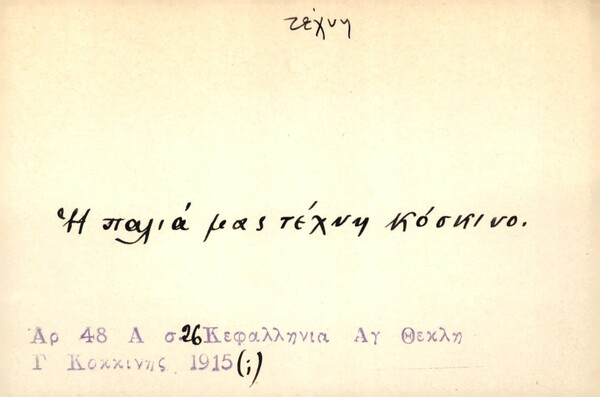 τέχνη
Ἡ παλιά μας τέχνη κόσκινο.
Αρ 48 Α σ 26 Κεφαλληνια Αγ Θεκλη
Γ Κοκκινης 1915 (;)